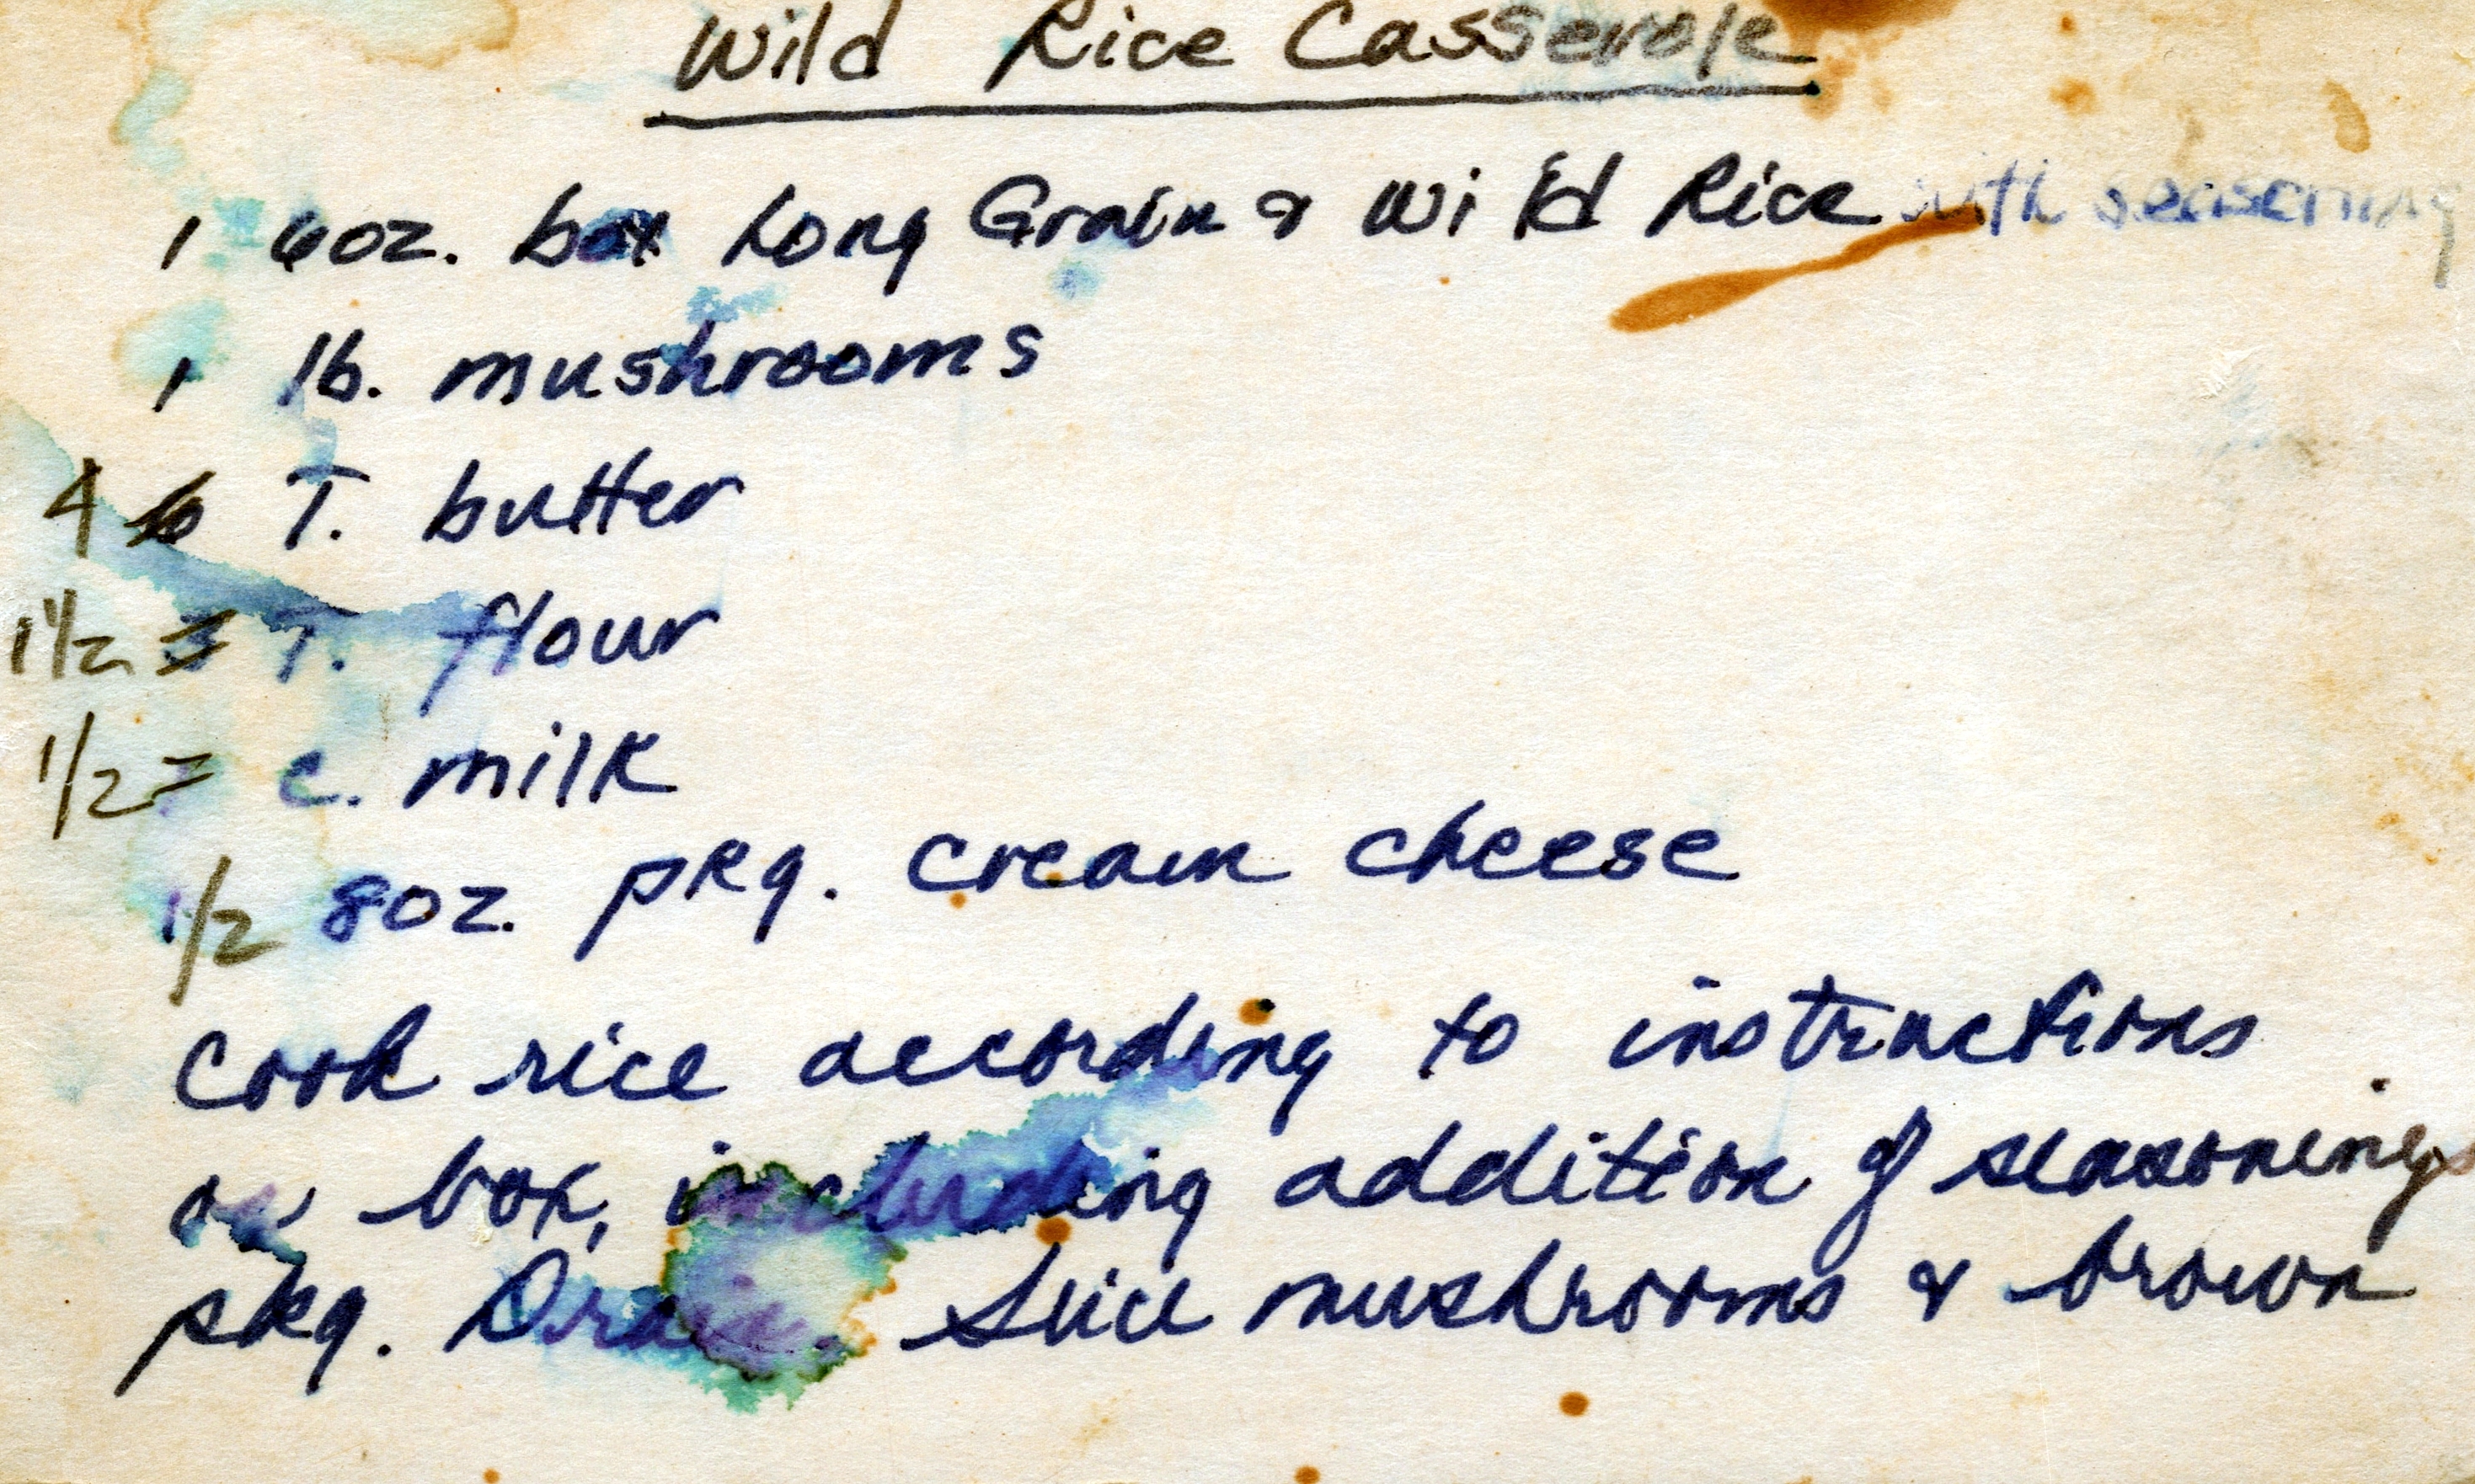 Wild Rice Casserole
1 6oz. box Long Grain & Wild Rice with seasoning
1 lb. mushrooms
4 6 T. butter
1 1/2 3 T. flour
1/2 c. milk
1/2 8oz. pkg. cream cheese
Cook rice according to instructions
on box, including addition of seasonings
pkg. Drain. Slice mushrooms & brown